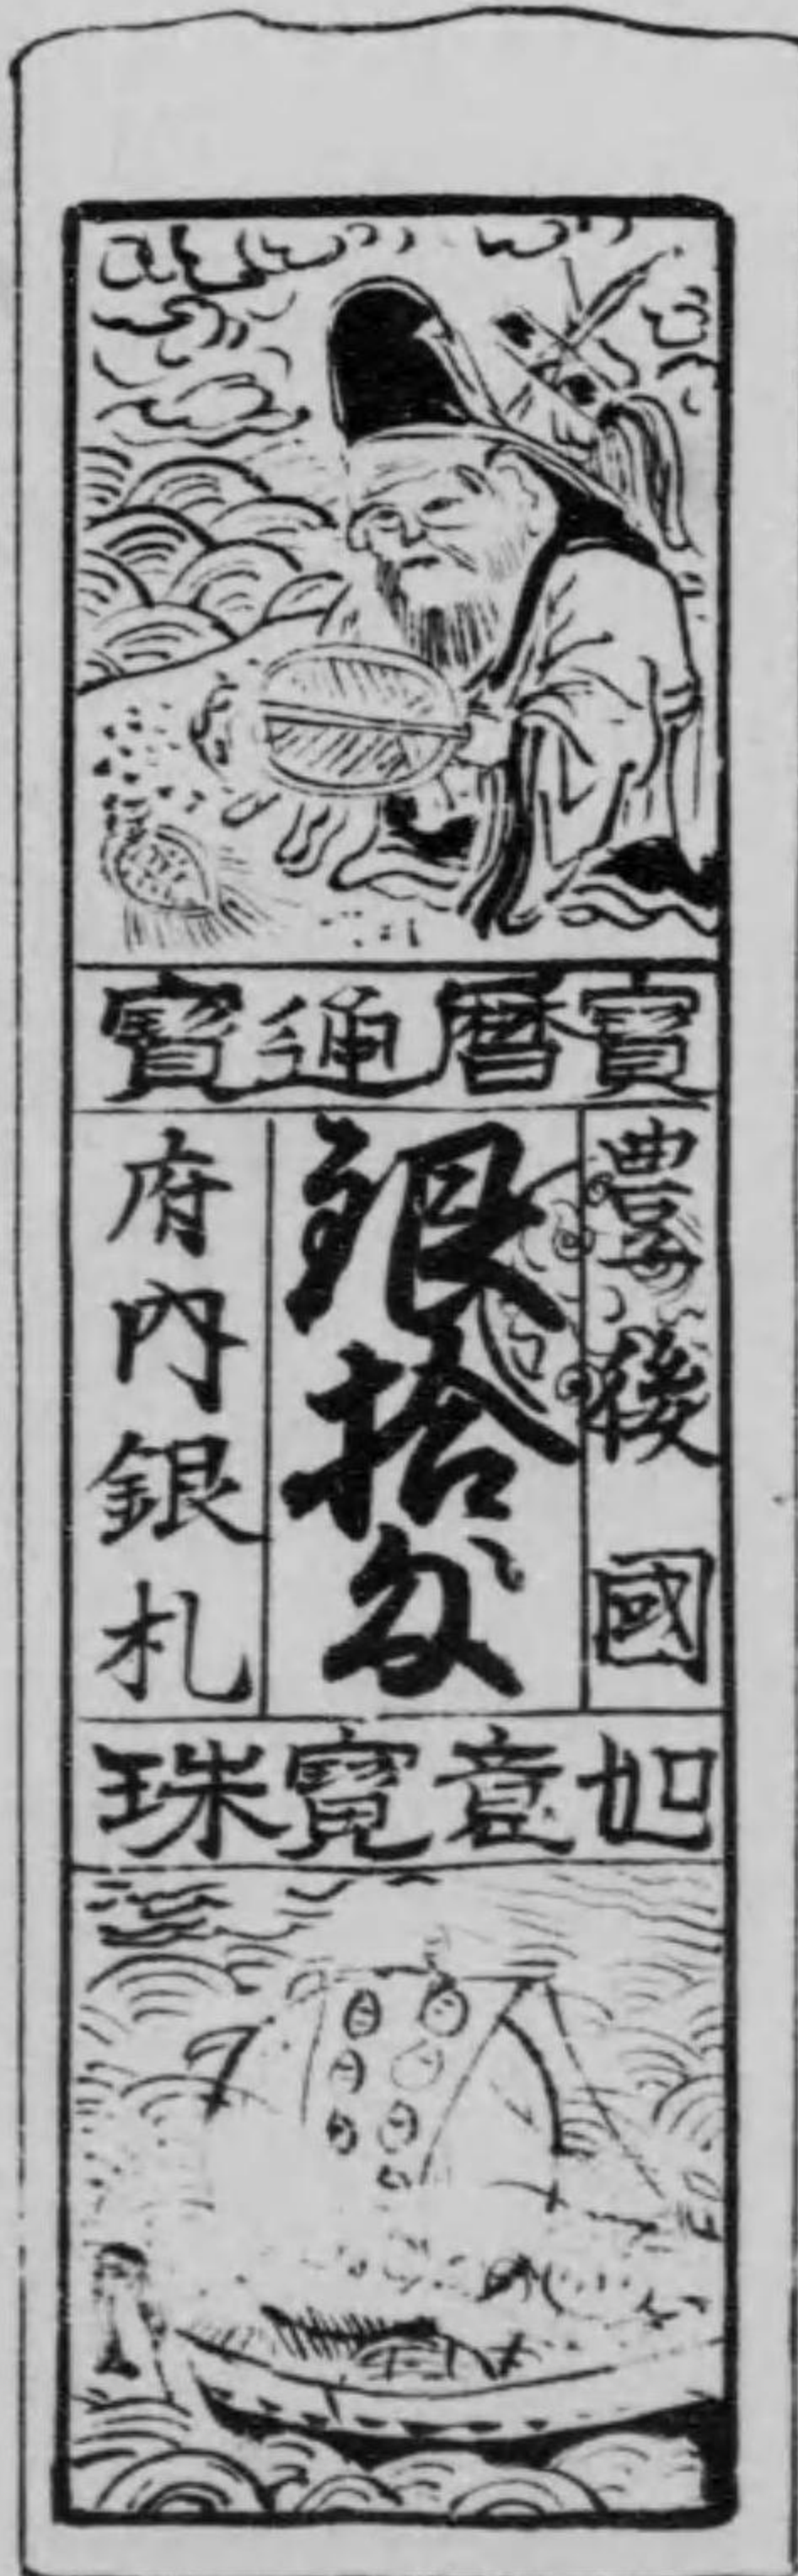 寶曆通寶
豊後國
銀拾匁
府內銀札
如意寶珠